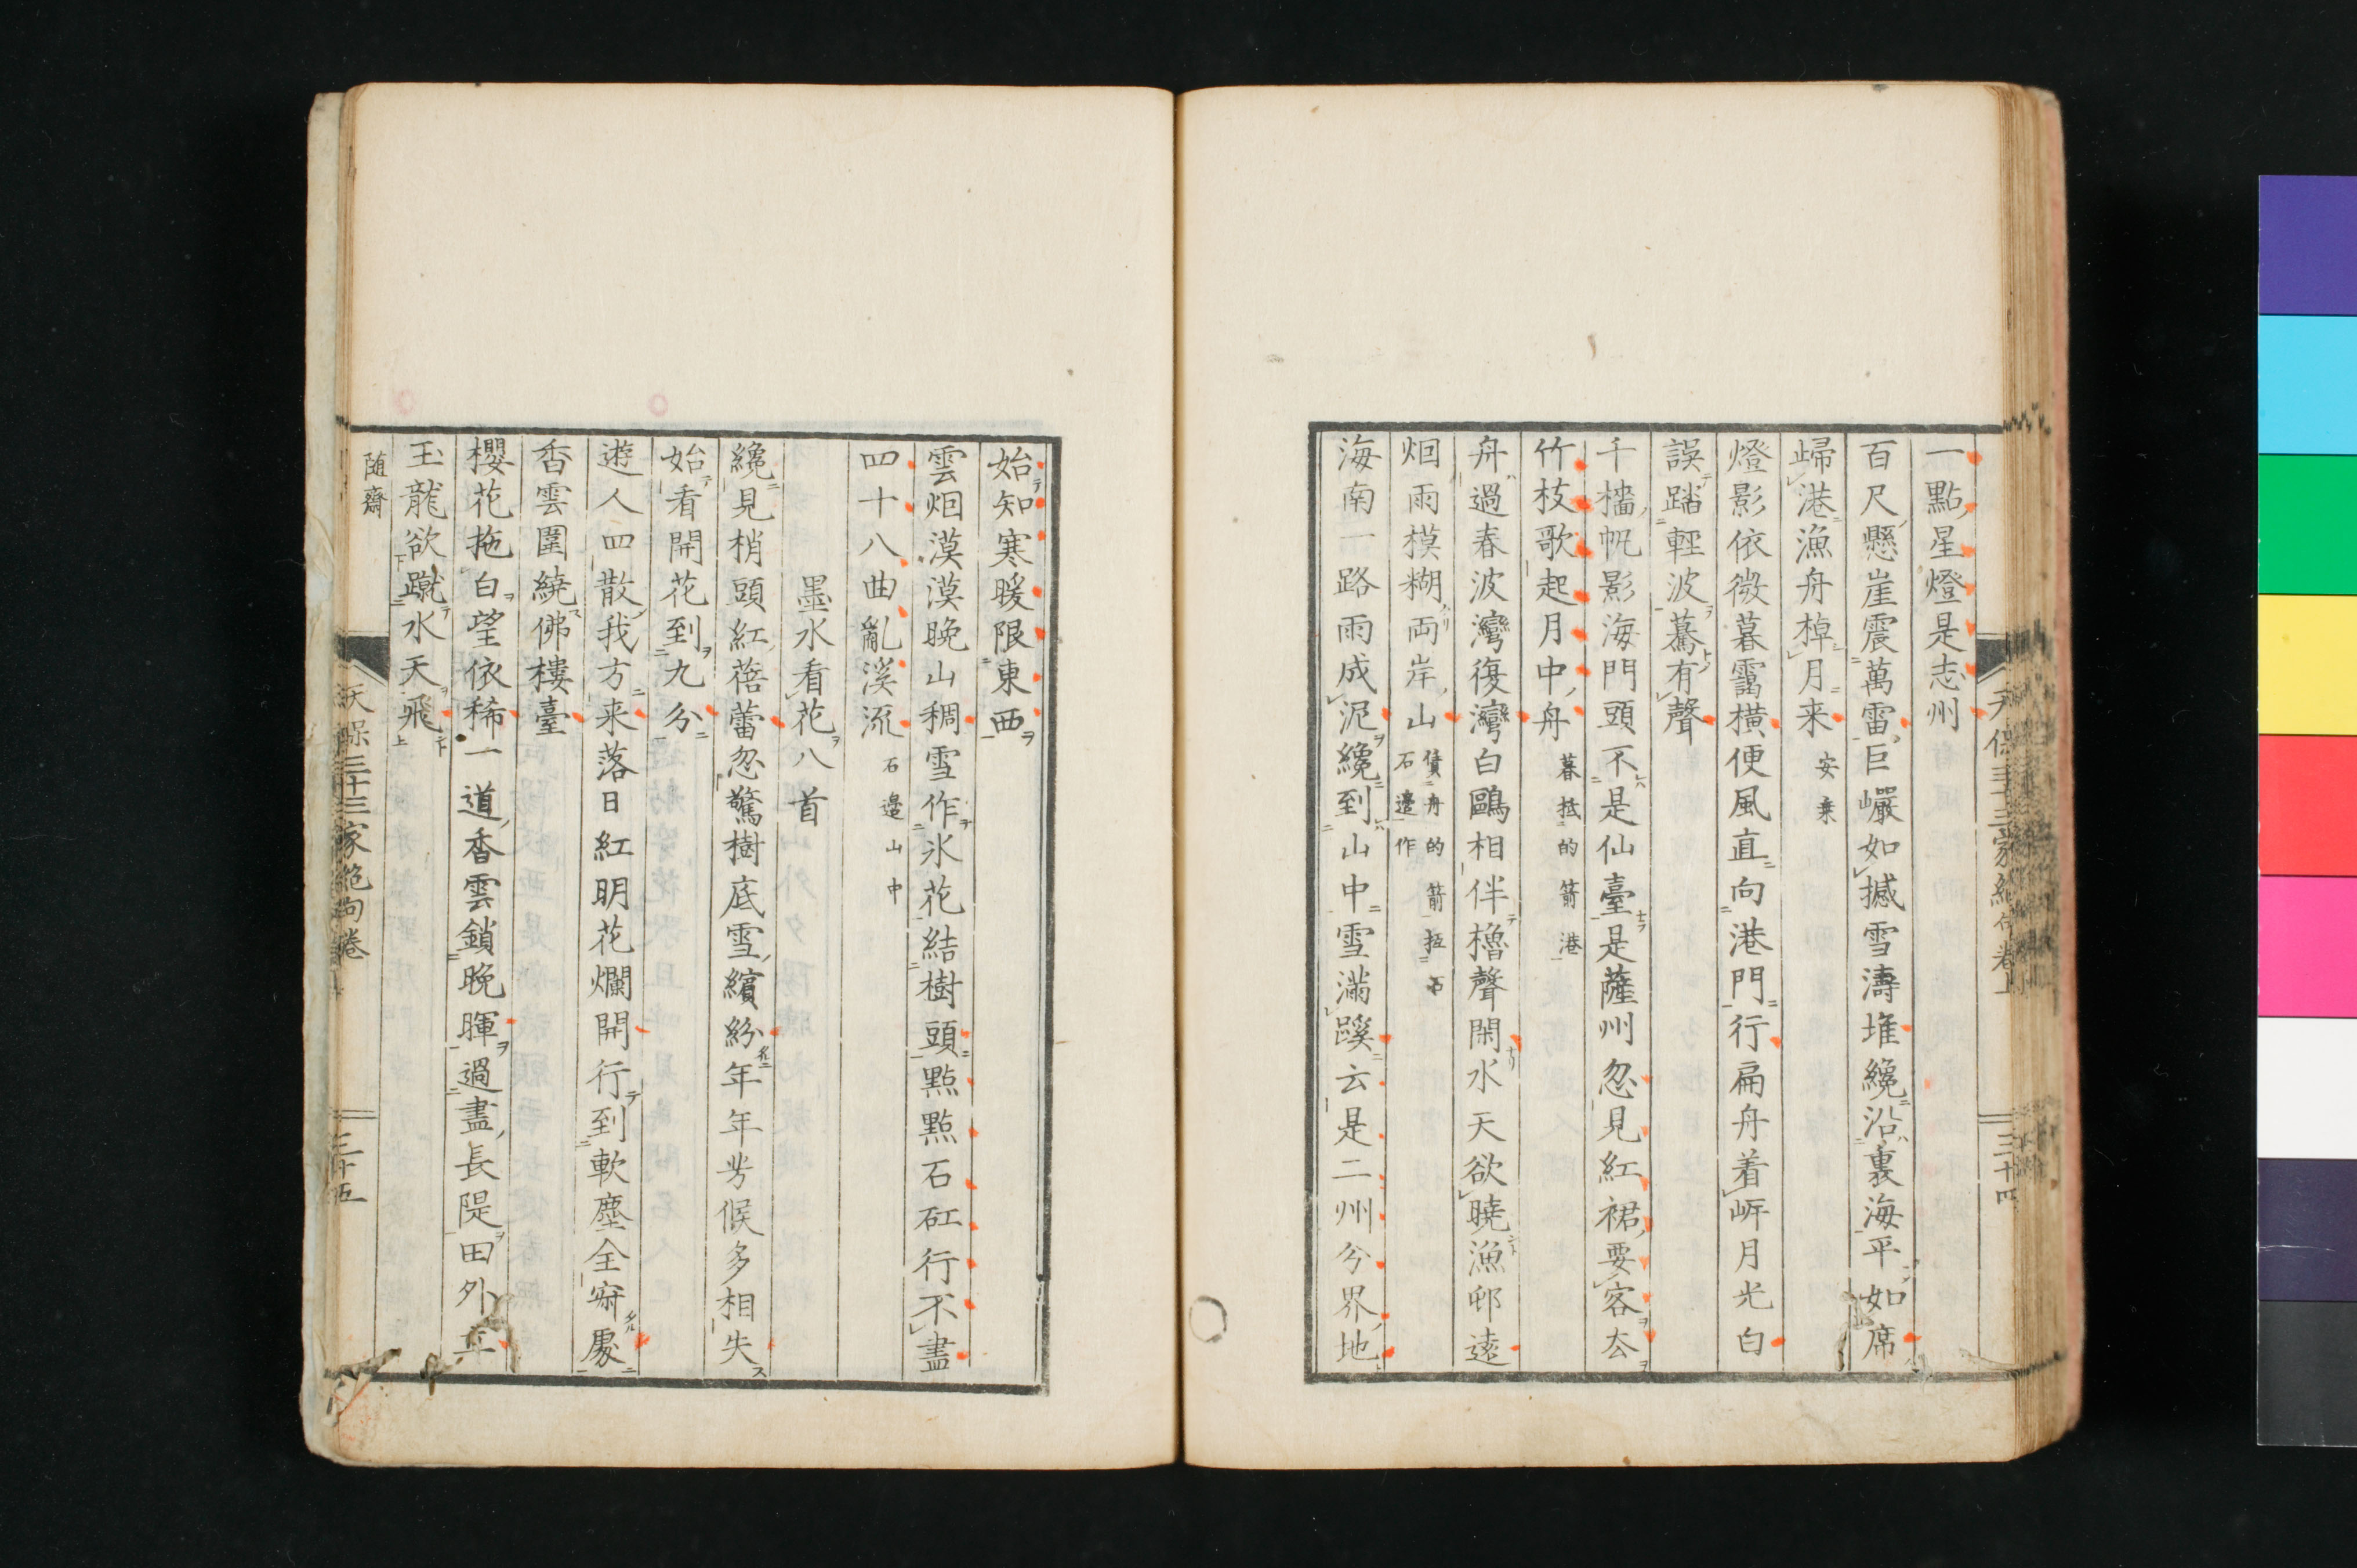 一點星燈是志州
百尺懸崖震萬雷巨巖如撼雪濤堆纔沿裏海平如席
歸港漁舟棹月来 安乗
燈影依微暮靄橫便風直向港門行扁舟着岸月光白
誤踏輕波驀有聲
千檣帆影海門頭不是仙臺是薩州忽見紅裙要客去
竹枝歌起月中舟 暮抵的箭港
舟過春波灣復灣白鷗相伴櫓聲閑水天欲曉漁邨遠
烟雨模糊両岸山 僨舟的箭抵石邉作
海南一路雨成泥纔到山中雪滿蹊云是二州分界地
天保三十三家絶句卷上 三十四
始知寒暖限東西
雲烟漠漠晩山稠雪作氷花結樹頭點點石矼行不盡
四十八曲亂溪流 石邉山中
墨水看花八首
纔見梢頭紅蓓蕾忽驚樹底雪繽紛年年芳候多相失
始看開花到九分
遊人四散我方来落日紅明花爛開行到軟塵全寂處
香雲圍繞佛樓臺
櫻花拖白望依稀一道香雲鎖晩暉過盡長隄田外
玉龍欲蹴水天飛
天保三十三家絶句卷 三十五
随齋